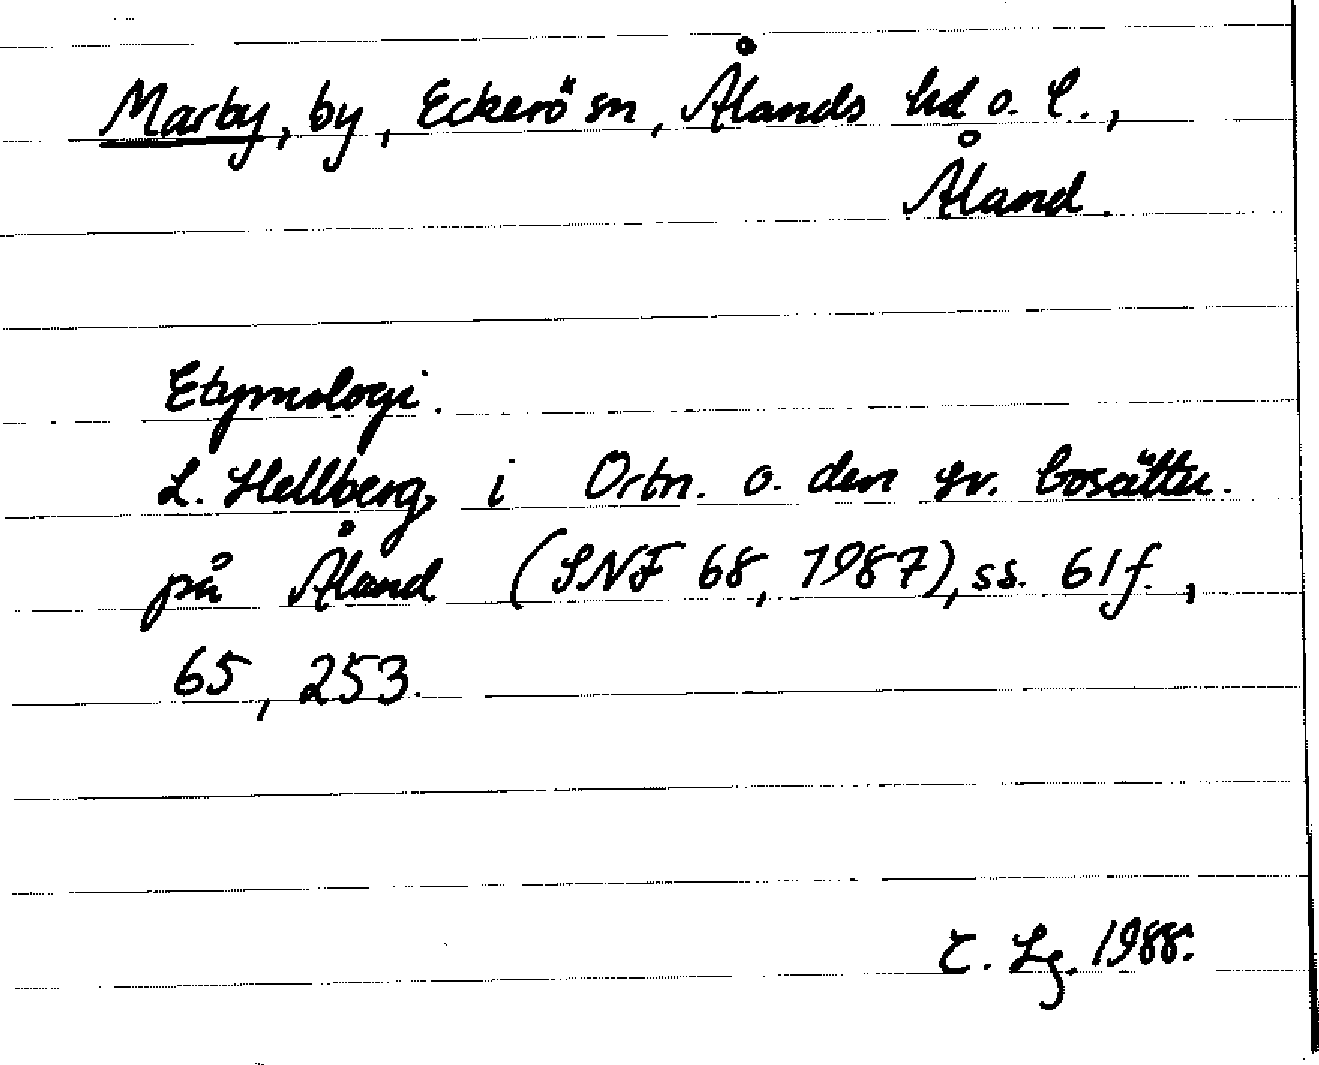 Marby, by, Eckerö sn, Ålands hd o. l.,
Åland.
Etymologi.
L. Hellberg, i Ortn. o. den sv. bosättn.
på Åland (SNF 68, 1987), ss. 61f.,
65, 253.
C. Lg. 1988.